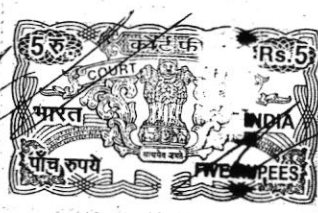 5 रु कोर्ट फी Rs.5
COURT
भारत INDIA
सत्यमेव जयते
पाँच रुपये FIVE RUPEES